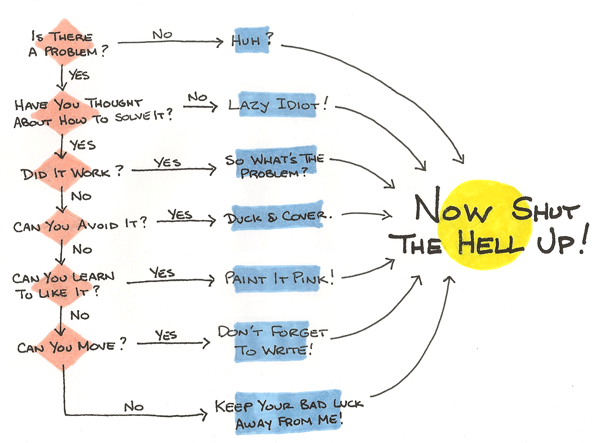 IS THERE
A PROBLEM?
NO
HUH?
YES
HAVE YOU THOUGHT
ABOUT HOW TO SOLVE IT?
NO
LAZY IDIOT!
YES
DID IT WORK?
YES
SO WHAT'S THE
PROBLEM?
NO
CAN YOU AVOID IT?
YES
DUCK & COVER.
NOW SHUT
THE HELL UP!
NO
CAN YOU LEARN
TO LIKE IT?
YES
PAINT IT PINK!
NO
CAN YOU MOVE?
YES
DON'T FORGET
TO WRITE!
NO
KEEP YOUR BAD LUCK
AWAY FROM ME!